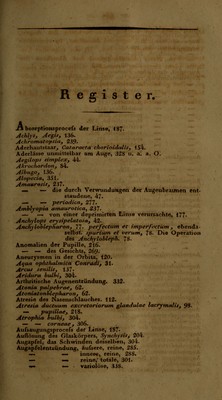 Register.
Absorptionsprocess der Linse, 187.
Achlys, Aegis, 136.
Achromatopsia, 259.
Aderhautstaar, Cataracta chorioidalis, 154.
Aderlässe unmittelbar am Auge, 323 u. a. a. O.
Aegilops simplex, 44.
Akrochordon, 54.
Albugo, 136.
Alopecia, 331.
Amaurosis, 237.
— — die durch Verwundungen der Augenbraunen ent-
standene, 47.
— — periodica, 277.
Amblyopia amaurotica, 237.
— — von einer deprimirten Linse verursachte, 177.
Anchylops erysipelatosa, 42.
Anchyloblepharon, 77. perfectum et imperfectum, ebenda-
selbst. spurium et verum, 78. Die Operation
des Anchylobleph. 78.
Anomalien der Pupille, 216.
— — des Gesichts, 269.
Aneurysmen in der Orbita, 120.
Aqua ophthalmica Conradi, 31.
Arcus senilis, 137.
Aridura bulbi, 304.
Arthritische Augenentzündung. 332.
Atonia palpebrae, 62.
Atoniatoblepharon, 62.
Atresie des Nasenschlauches, 112.
Atresia ductuum excretoriorum glandulae lacrymalis, 98.
— pupillae, 218.
Atrophia bulbi, 304.
— — corneae, 300.
Aufsaugungsprocess der Linse, 187.
Auflösung des Glaskörpers, Synchysis, 204.
Augapfel, das Schwinden desselben, 304.
Augapfelentzündung, äussere, reine, 285.
— — innere, reine, 288.
— — reine, totale, 301.
— — variolöse, 336.